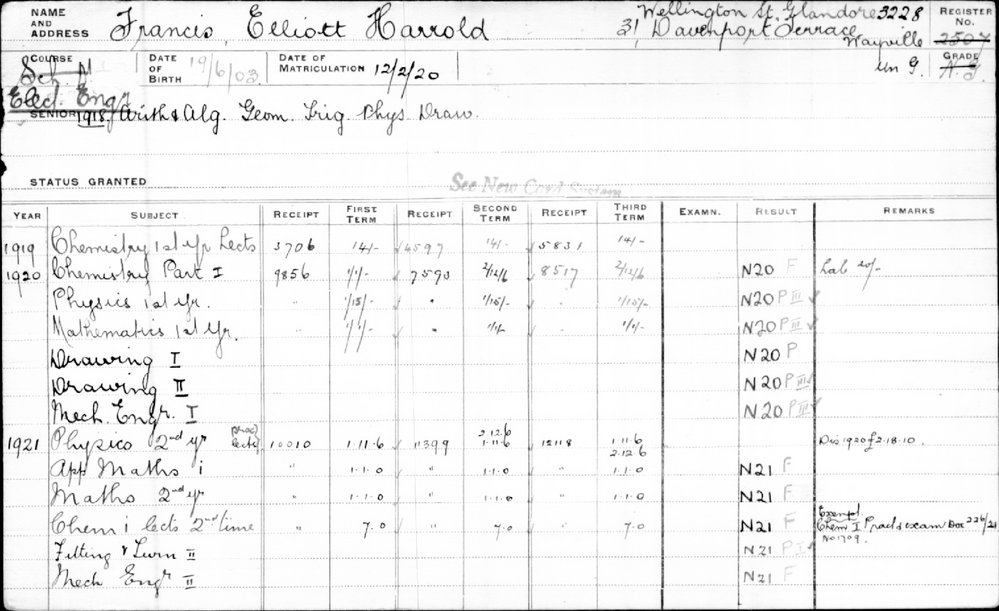 NAME AND ADDRESS Francis, Elliott Harrold Wellington St. Glandore 3228 REGISTER No. 2507
31, Davenport Terrace, Wayville
COURSE Sch. DATE OF BIRTH 19/6/03 DATE OF MATRICULATION 12/2/20 Un G. GRADE
Elect. Engr
SENIOR 1918, Arith & Alg. Geom. Trig. Phys. Draw.
STATUS GRANTED See New Card System
YEAR SUBJECT RECEIPT FIRST TERM RECEIPT SECOND TERM RECEIPT THIRD TERM EXAMN. RESULT REMARKS
1919 Chemistry 1st yr Lects 3706 14/- 4597 14/- 5831 14/-
1920 Chemistry Part I 9856 1/1/- 7593 2/12/6 8517 2/12/6 N20 F Lab 10/-
Physics 1st yr. " 1/15/- " 1/15/- 1/15/- N20 P III
Mathematics 1st Yr. " 1/1/- " 1/1/- 1/1/- N20 P III
Drawing I N20 P
Drawing II N20 P III
Mech. Engr. I N20 P III
1921 Physics 2nd yr (prac) lects 10010 1.11.6 11399 2.12.6 1.11.6 12118 1.11.6 2.12.6 Dis 1920 £2.18.10.
App Maths i " 1.1.0 " 1.1.0 " 1.1.0 N21 F
Maths 2nd yr " 1.1.0 " 1.1.0 " 1.1.0 N21 F
Chem i lects 2nd time " 7.0 " 7.0 " 7.0 N21 F Exempt Chem I Prac & exam Doc 226/21 No 1709.
Fitting & Turn II N21 P I
Mech Engr II N21 F